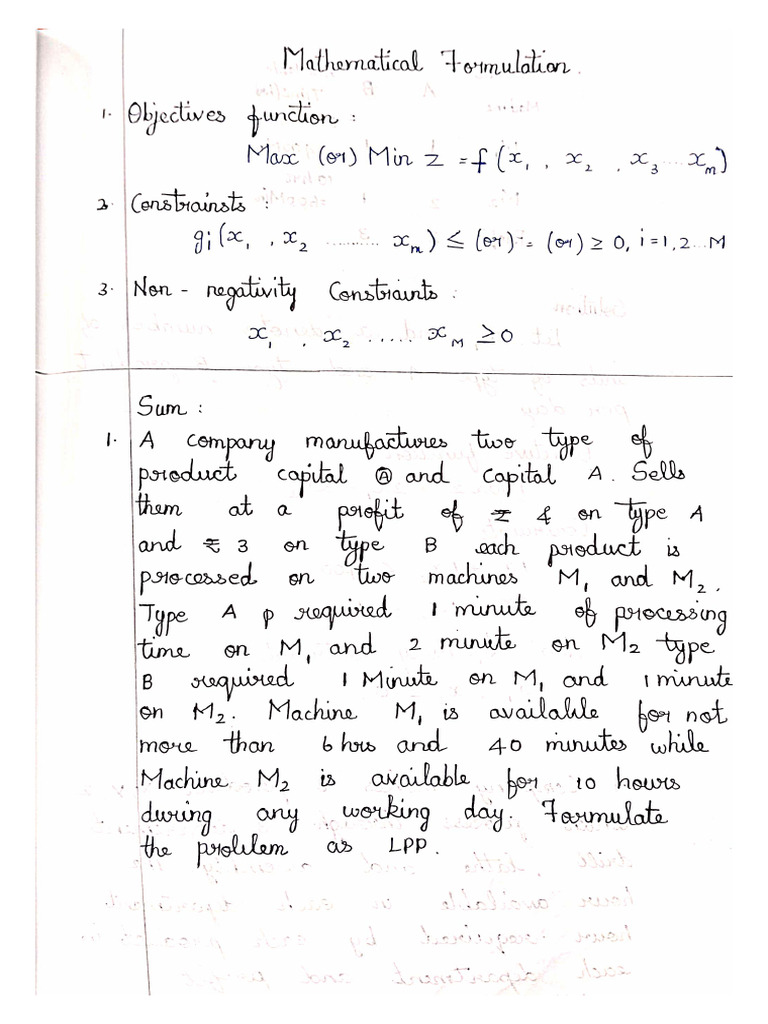 Mathematical Formulation.
1. Objectives function :
Max (or) Min Z = f (x₁ , x₂ , x₃ ... xₘ)
2. Constrainsts :
gi(x₁ , x₂ .......... xₘ) ≤ (or) = (or) ≥ 0, i = 1, 2 ... M
3. Non - negativity Constraints :
x₁ , x₂ ..... x_M ≥ 0
Sum :
1. A company manufactures two type of
product capital Ⓐ and Capital A. Sells
them at a profit of ₹ 4 on type A
and ₹ 3 on type B each product is
processed on two machines M₁ and M₂.
Type A p required 1 minute of processing
time on M₁ and 2 minute on M₂ type
B required 1 Minute on M₁ and 1 minute
on M₂. Machine M₁ is available for not
more than 6 hrs and 40 minutes while
Machine M₂ is available for 10 hours
during any working day. Formulate
the problem as LPP.